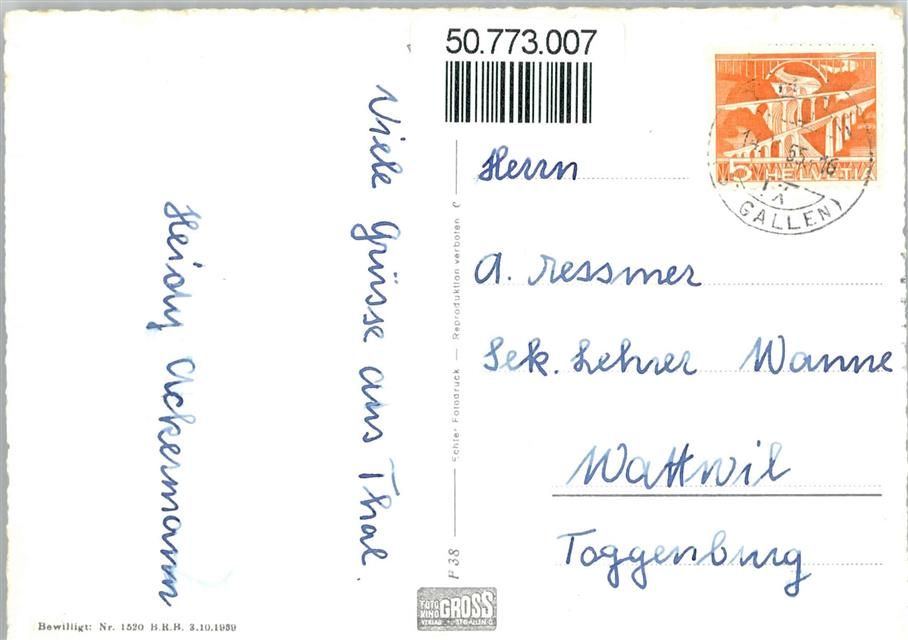 50.773.007
Viele Grüsse aus Thal.
Heidy Ackermann
Herrn
A. Tessmer
Sek. Lehrer Wanne
Wattwil
Toggenburg
5 HELVETIA
GALLEN)
Echter Fotodruck — Reproduktion verboten
F 38
FOTO
KINO GROSS
VERLAG ST.GALLEN
Bewilligt: Nr. 1520 B.R.B. 3.10.1939